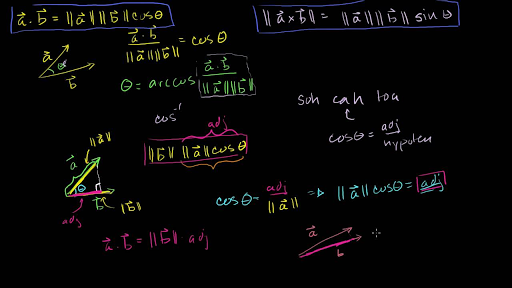 a⃗ · b⃗ = ||a⃗|| ||b⃗|| cos θ
||a⃗ × b⃗|| = ||a⃗|| ||b⃗|| sin θ
a⃗
θ
b⃗
a⃗ · b⃗ / ||a⃗|| ||b⃗|| = cos θ
θ = arccos a⃗ · b⃗ / ||a⃗|| ||b⃗||
cos⁻¹
adj
||b⃗|| ||a⃗|| cos θ
soh cah toa
cos θ = adj / hypoten
||a⃗||
a⃗
θ
b⃗
||b⃗||
adj
cos θ = adj / ||a⃗|| ⇒ ||a⃗|| cos θ = adj
a⃗ · b⃗ = ||b⃗|| · adj
a⃗
b